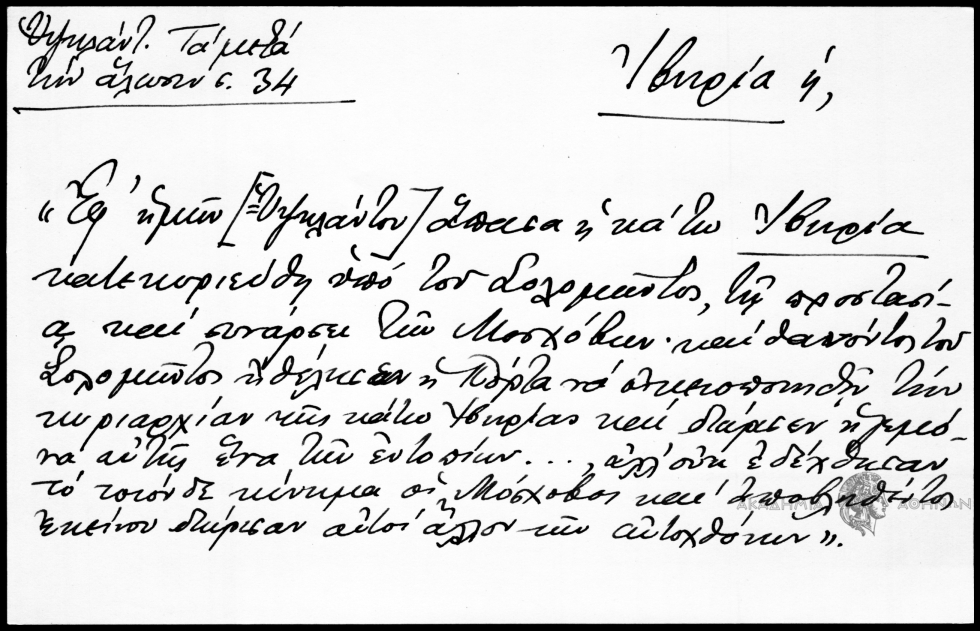 Ὑψηλάντ. Τά μετά
τήν ἅλωσιν σ. 34
Ἰβηρία ἡ,
«Ἐφ' ἡμῶν [=Ὑψηλάντου] ἅπασα ἡ κάτω Ἰβηρία
κατεκυριεύθη ὑπό τοῦ Σολομῶντος, τῇ προστασί-
ᾳ καί συνάρσει τῶν Μοσχόβων· καί θανόντος τοῦ
Σολομῶντος ἠθέλησεν ἡ Πόρτα νά οἰκειοποιηθῇ τήν
κυριαρχίαν τῆς κάτω Ἰβηρίας καί διώρισεν ἡγεμό-
να αὐτῆς ἕνα τῶν ἐντοπίων..., ἀλλ' οὐκ ἐδέχθησαν
τό τοιόνδε κίνημα οἱ Μόσχοβοι καί ἀποβληθέντος
ἐκείνου διώρισαν αὐτοί ἄλλον τῶν αὐτοχθόνων».
ΑΚΑΔΗΜΙΑ ΑΘΗΝΩΝ